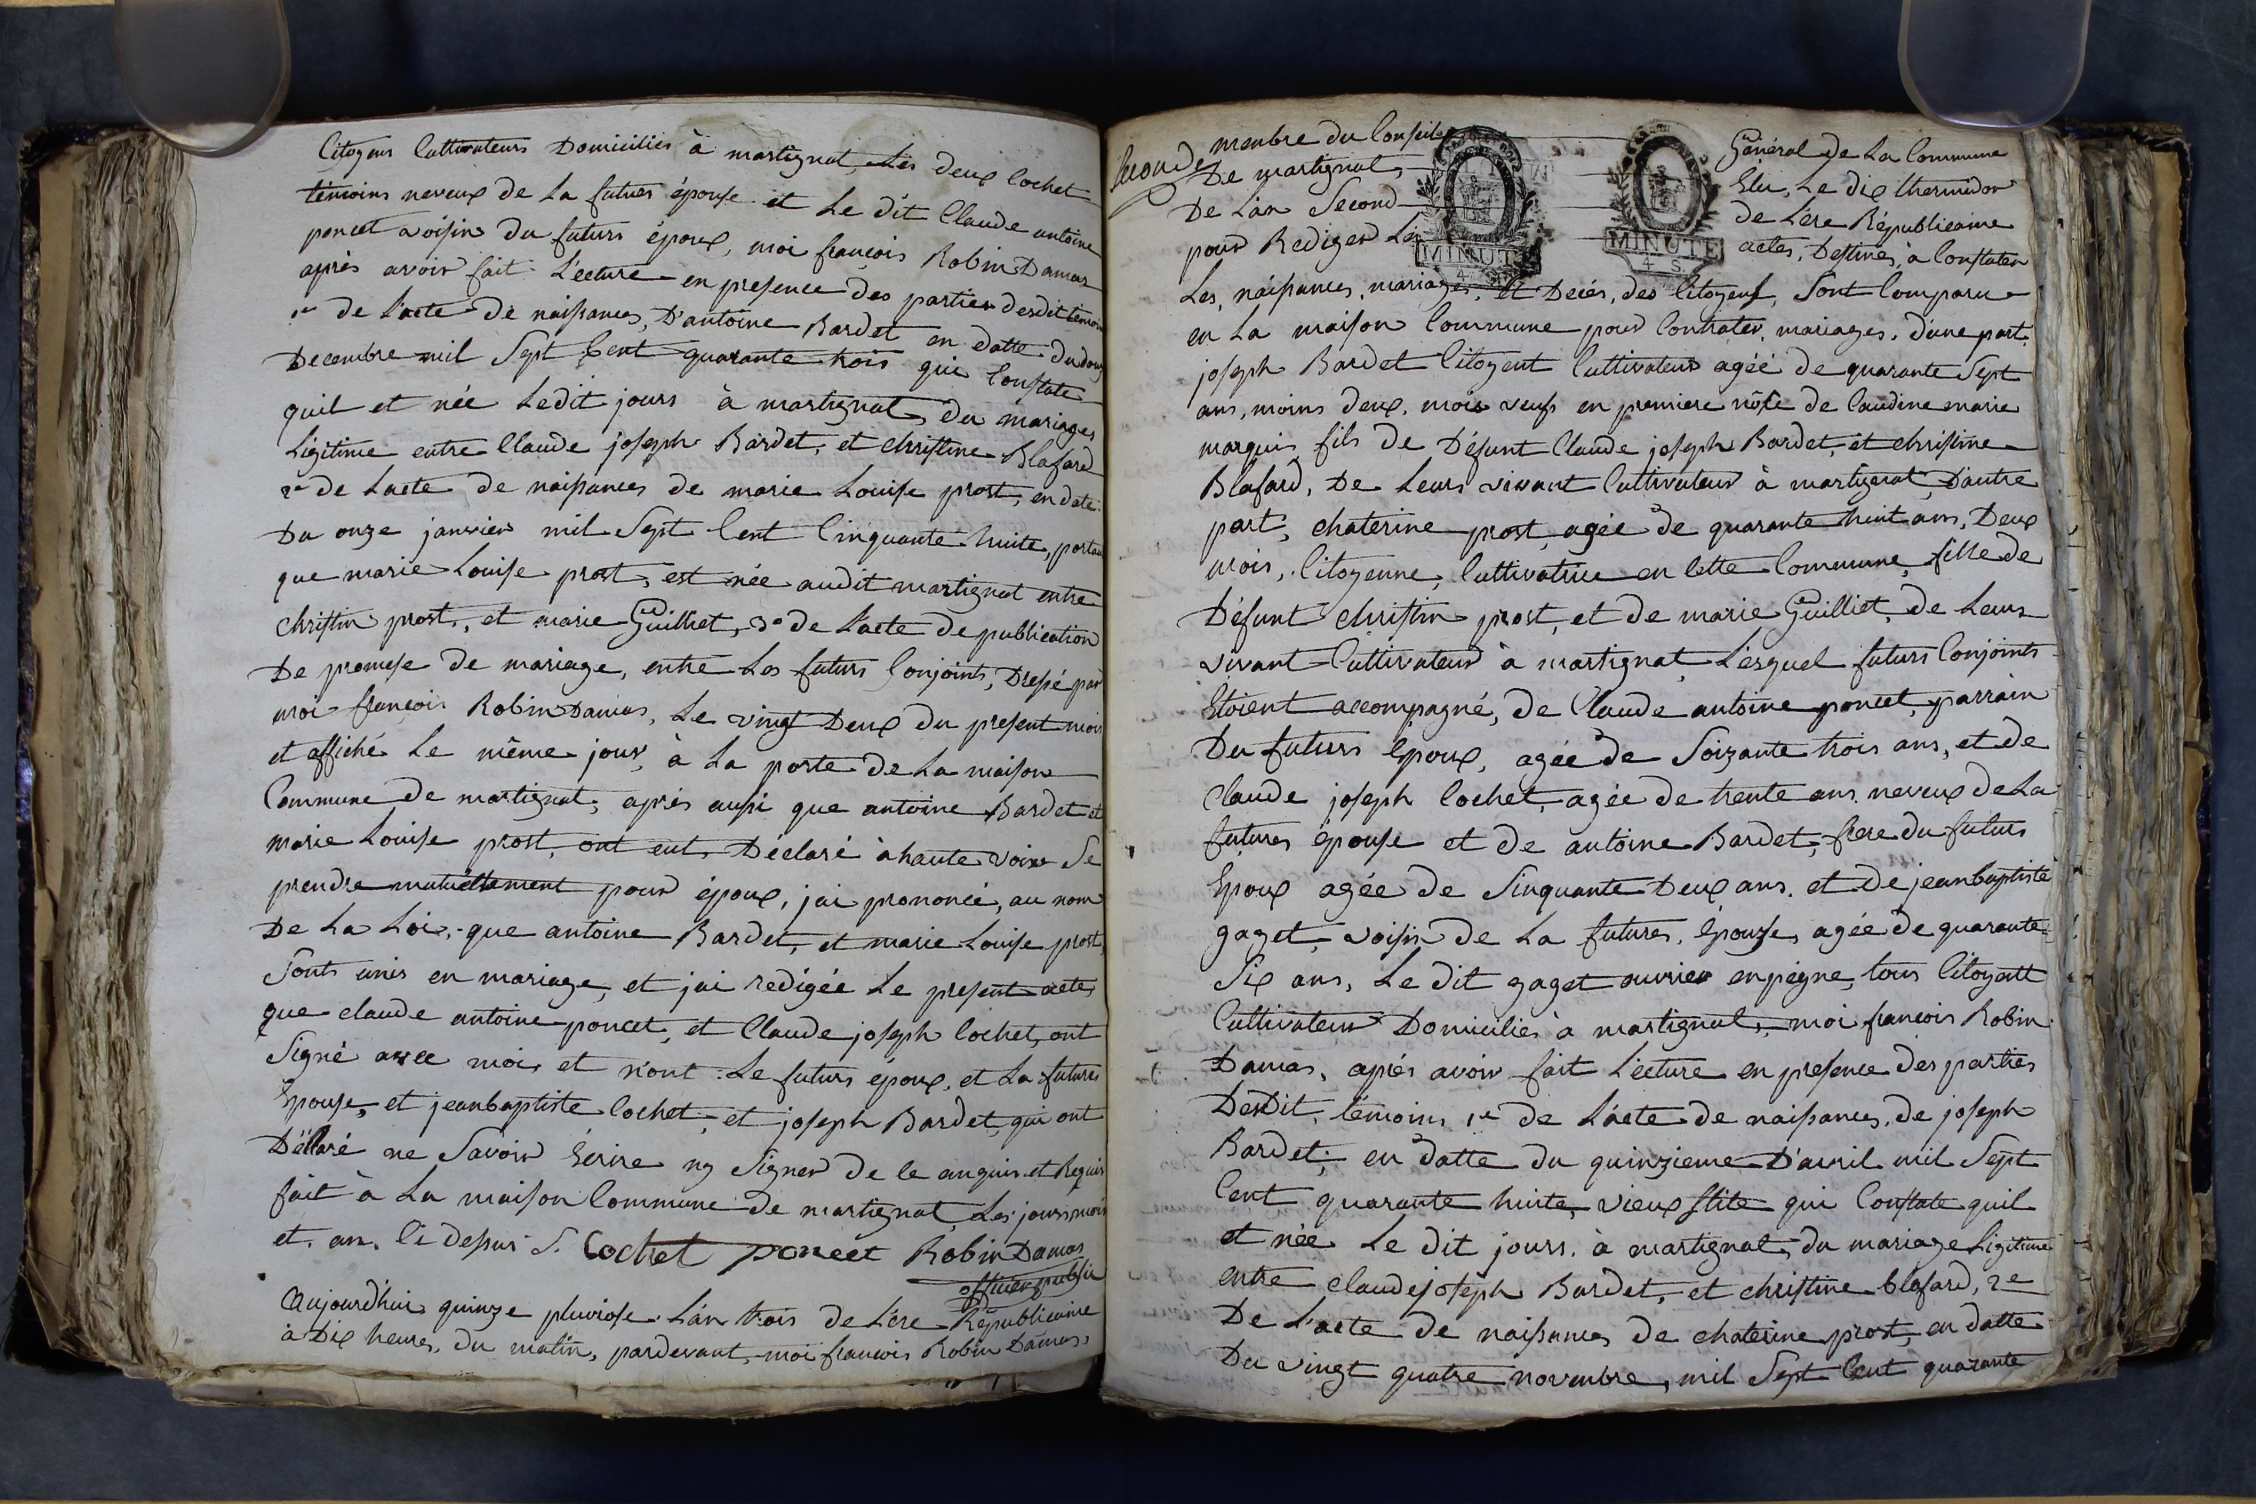 Citoyens Cultivateurs Domiciliés à martignat, Les deux Cochet
témoins neveux de La futures épouse et Le dit Claude antoine
poncet voisin du futurs époux, moi françois Robin Damas
après avoir fait Lécture en presence des parties desdit témoins
1er de L'acte de naissances, D'antoine Bardet en datte du douz
Decembre mil Sept Cent quarante trois qui Constate
quil et née Ledit jours à martignat, du mariages
Ligitime entre Claude joseph Bardet, et christine Blafard
2e de Lacte de naissances de marie Louise prost, en date
Du onze janvier mil Sept Cent Cinquante huite, portan
que marie Louise prost, est née audit martignat entre
christin prost, et marie Guilliet, 3e de L'acte de publication
De promese de mariage, entre Les futurs Conjoints, Dressé par
moi françois Robin Damas, Le vingt Deux du present mois
et affiché Le même jour, à La porte de La maison
Commune de martignat, après aussi que antoine Bardet et
marie Louise prost, ont eut, Déclaré à haute voixe Se
prendre mutuellement pour époux, jai prononcé, au nom
De La Loi, que antoine Bardet, et marie Louise prost,
Sont unis en mariage, et jai redigée Le present acte,
que claude antoine poncet, et Claude joseph Cochet, ont
Signé avec moi, et n'ont Le futurs époux, et La futures
Epouse, et jeanbaptiste Cochet, et joseph Bardet, qui ont
Déclaré ne Savoir Ecrire ny Signer de ce anquis et Requis
fait à La maison Commune de martignat, Les jours, mois
et, an, Ci dessus S. Cochet poncet Robin Damas
officier public
Aujourd'hui quinze pluviose L'an trois de L'ére Républicaine
à Dix heures, du matin, pardevant, moi françois Robin Damas,
Seconde
membre du Conseil Général de La Commune
De martignat, Elu, Le dix thermidor
De L'an Second de L'ére Républicaine
pour Rediger Les actes, Destinés, à Constater
MINUTE
4 S
MINUTE
4 S
Les, náissances, mariages, et Décés, des Citoyens, Sont Comparu
en La maison Commune pour Contrater, mariages, d'une part,
joseph Bardet Citoyent Cultivateur agéé de quarante Sept
ans, moins deux, mois veufs en premiere nôse de Claudine marie
marquis, fils de Défunt Claude joseph Bardet, et christine
Blafard, De Leurs vivant Cultivateur à martignat, D'autre
part, chaterine prost, agée de quarante huit ans, Deux
mois, Citoyenne, Cultivatrice en Cette Commune, fille de
Défunt christin prost, et de marie Guilliet, de Leurs
vivant Cultivateur à martignat, Lésquel futurs Conjoints
Etoient accompagné, de Claude antoine poncet, parrain
Du futurs Epoux, agée de Soizante trois ans, et de
Claude joseph Cochet, agée de trente ans, neveux de La
futures épouse et de antoine Bardet, frere du futurs
Epoux agée de Sinquante Deux ans, et de jeanbaptiste
gaget, voisin de La futures, Epouze, agée de quarante
Six ans, Le dit gaget ouvrier en peigne, tous Citoyent
Cultivateur Domiciliés à martignat, moi francois Robin
Damas, après avoir fait Lécture en presence Des parties
Desdit, témoins, 1er de L'acte de naissances, de joseph
Bardet, en datte du quinzieme D'avril mil Sept
Cent quarante huite, vieux stile qui Constate quil
et née Le dit jours, à martignat, du mariage Ligitime
entre claudejoseph Bardet, et christine blafard, 2e
De L'acte de naissances de chaterine prost, en datte
Du vingt quatre novembre, mil Sept Cent quarante